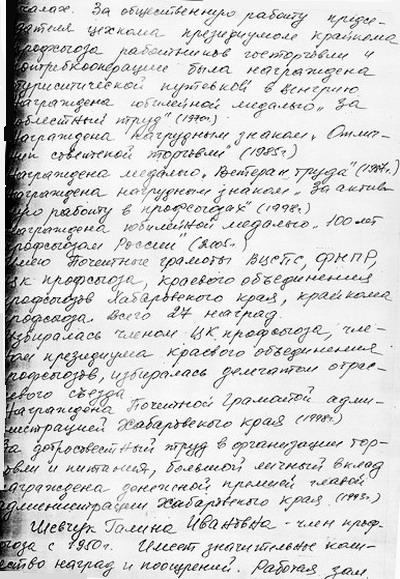 налах. За общественную работу предсе-
дателя цехкома президиумом крайкома
профсоюза работников госторговли и
потребкооперации была награждена
туристической путевкой в Венгрию
Награждена юбилейной медалью „За
доблестный труд" (1970г.)
Награждена нагрудным знаком „Отлич-
ник советской торговли" (1985г.)
Награждена медалью „Ветеран труда"
награждена нагрудным знаком „За актив-
ную работу в профсоюзах" (1998г.)
награждена юбилейной медалью „100 лет
профсоюзам России" (2005г.)
имею Почетные грамоты ВЦСПС, ФНПР,
ЦК профсоюза, краевого объединения
профсоюзов Хабаровского края, крайкома
профсоюза. Всего 27 наград.
избиралась членом ЦК профсоюза, чле-
ном президиума краевого объединения
профсоюзов, избиралась делегатом отрас-
левого съезда
Награждена Почетной Грамотой адми-
нистрацией Хабаровского края (1998г.)
За добросовестный труд в организации тор-
говли и питания, большой личный вклад
награждена денежной премией главой
администрации Хабаровского края. (1993г.)
Шевчук Галина Ивановна - член проф-
союза с 1950г. Имеет значительное коли-
чество наград и поощрений. Рабочая зам.